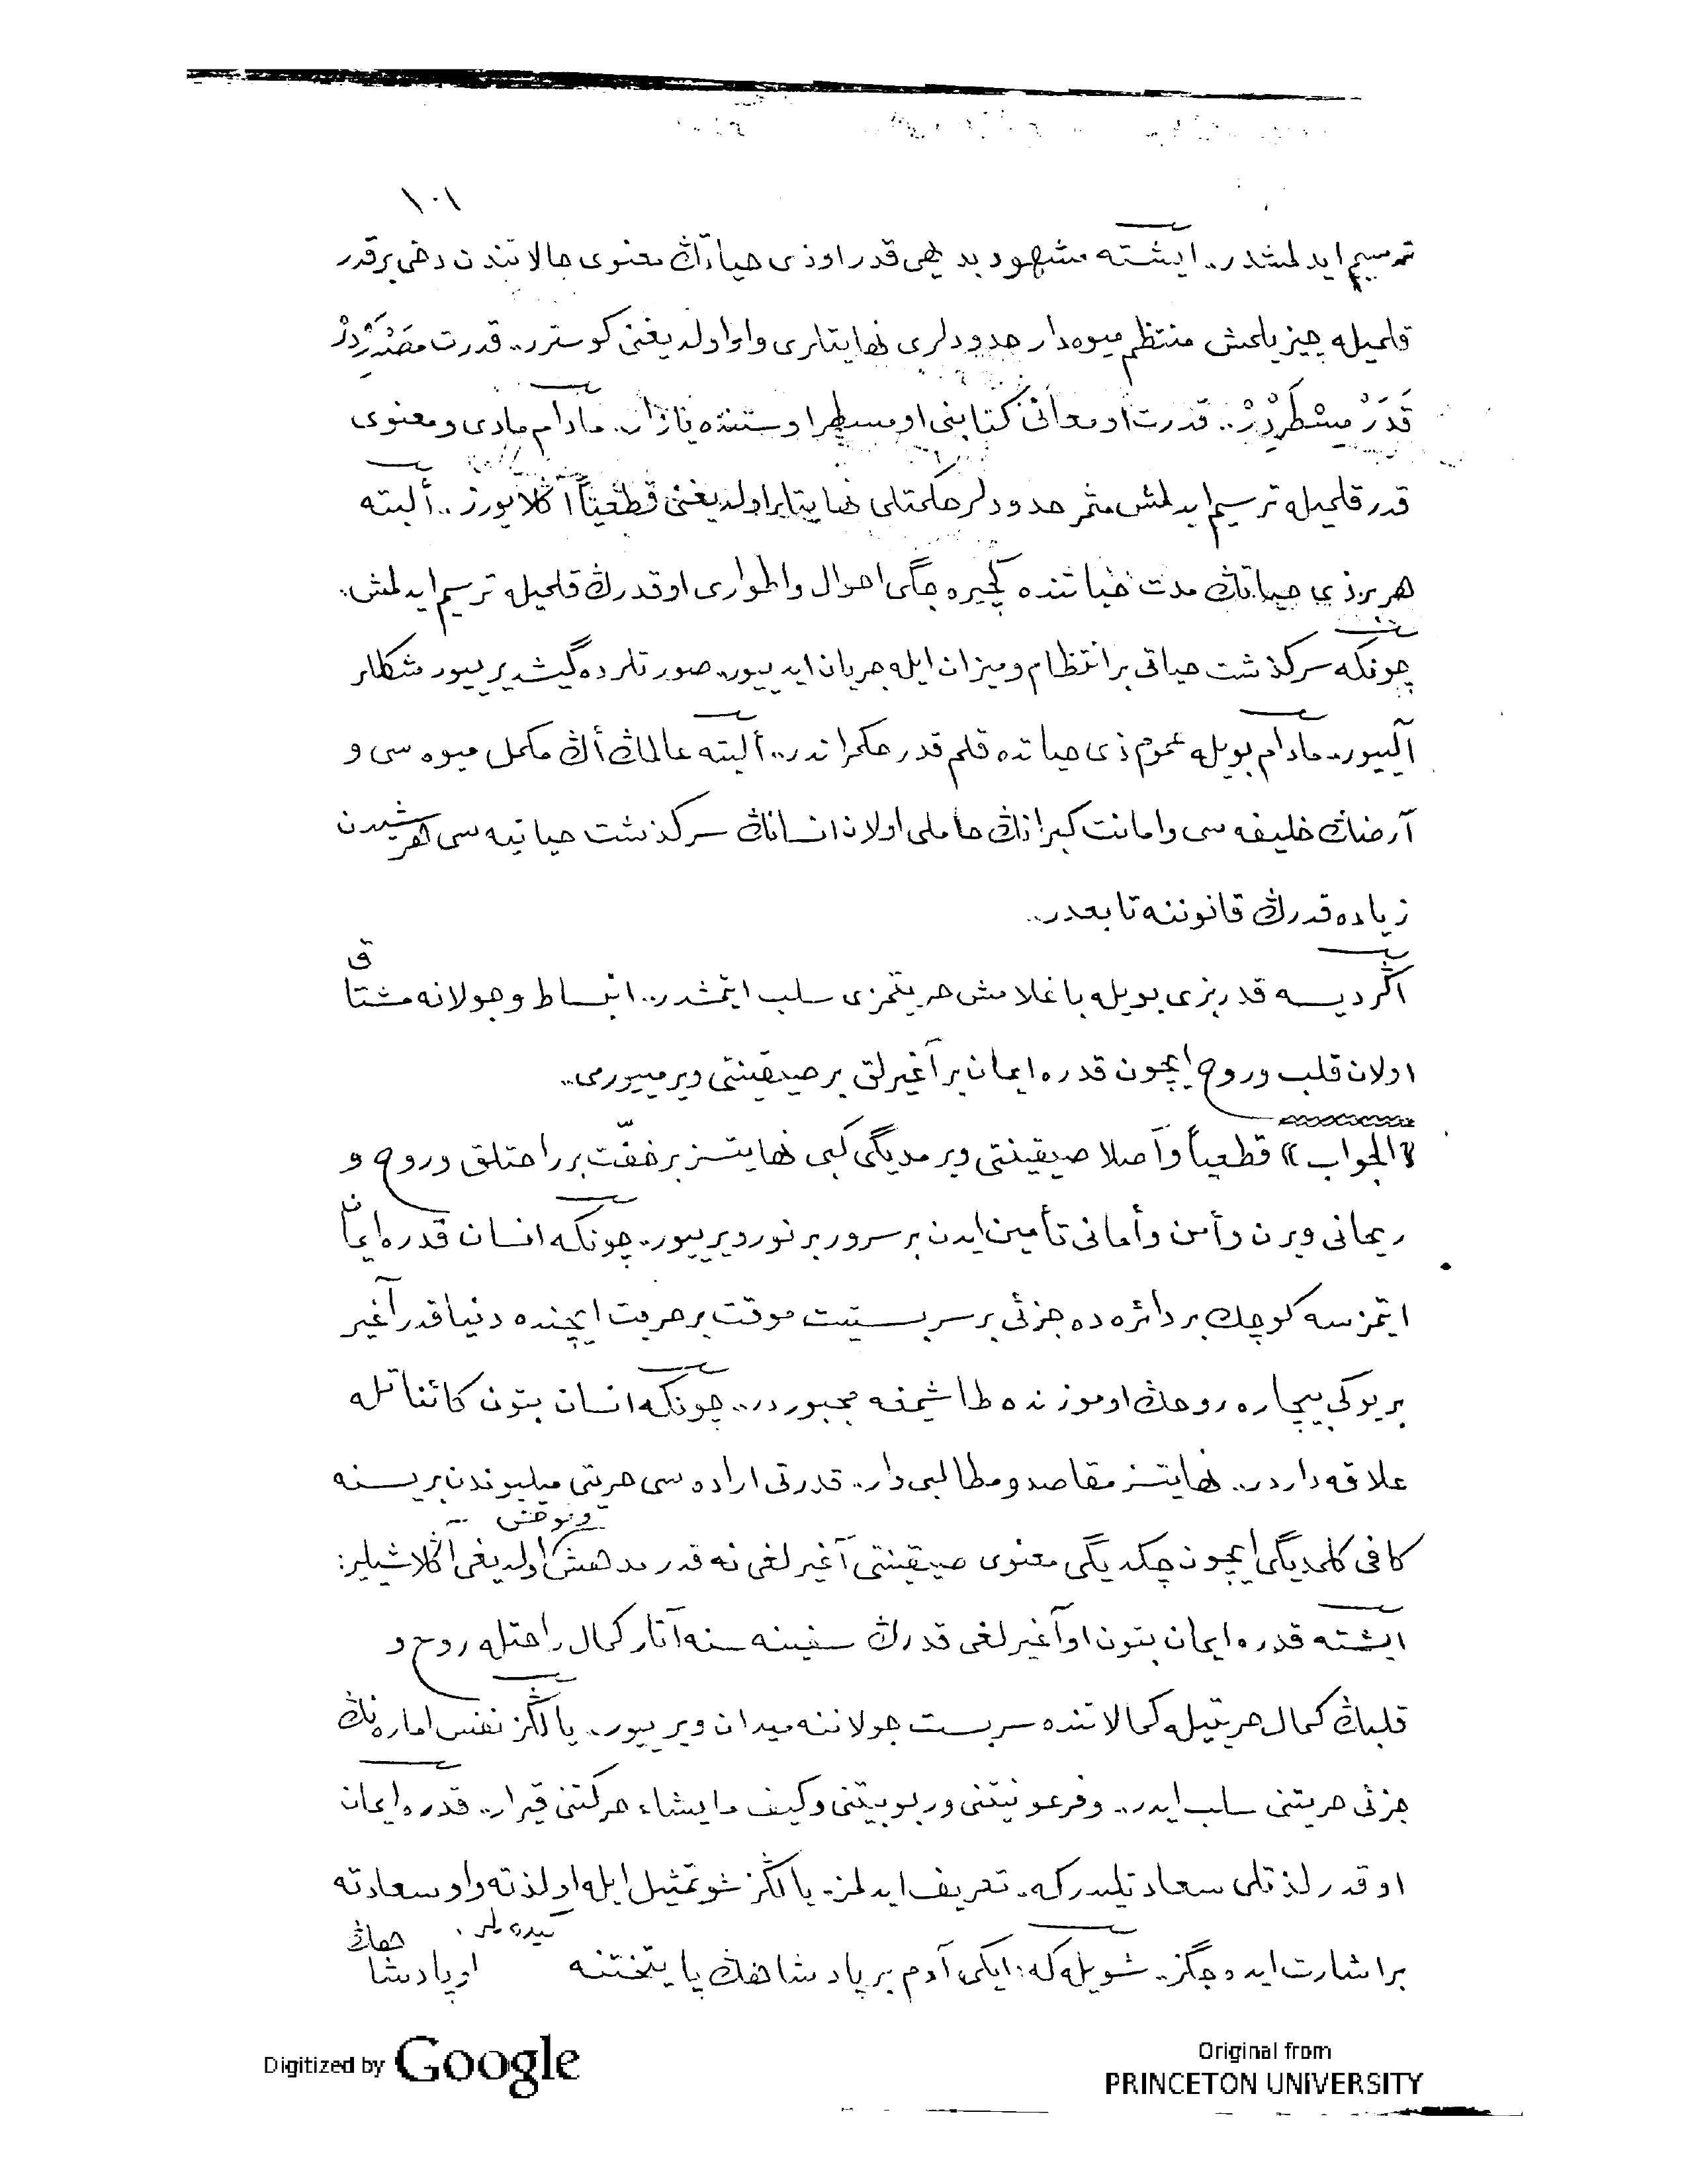 ١٠١
ترسیم ایدلمشدر.. ایشته مشهود بدیهی قدر او ذی حیاتڭ معنوی حالاتندن دخی بر قدر
قلمیله چیزیلمش منتظم میوه‌دار حدودلری نهایتلری وار اولدیغنی کوسترر.. قدرت مَصْدَرْدِرْ
قَدَرْ مِسْطَرْدِرْ.. قدرت او معانی کتابنی او مسطر اوستنده یازار.. مادام مادی و معنوی
قدر قلمیله ترسیم ایدلمش مثمر حدودلر حکمتلی نهایتلر اولدیغنی قطعیًا آڭلایورز.. ألبته
هر بر ذی حیاتڭ مدت حیاتنده کچیره‌جگی احوال و اطواری او قدرڭ قلمیله ترسیم ایدلمش.
چونکه سرکذشت حیاتی بر انتظام و میزان ایله جریان ایدییور.. صورتلر ده گیشدیرییور شکللر
آلییور.. مادام بویله عموم ذی حیاتده قلم قدر حکمراندر.. ألبته عالمڭ أڭ مکمل میوه سی و
آرضڭ خلیفه سی و امانت کبرانڭ حاملی اولان انسانڭ سرکذشت حیاتیه سی هر شیدن
زیاده قدرڭ قانوننه تابعدر..
اڭر دیسه‌ قدر بزی بویله باغلامش حریتمزی سلب ایتمشدر.. انبساط و جولانه مشتاق
اولان قلب و روح ایچون قدره ایمان بر آغیرلق بر صیقینتی ویرمییورمی..
«الجواب» قطعیاً و آصلا صیقینتی ویرمدیگی کبی نهایتسز بر خفّت بر راحتلق و روح و
ریحانی ویرن و أمن و أمانی تأمین ایدن بر سرور بر نور ویرییور.. چونکه انسان قدره ایمان
ایتمزسه کوچك بر دائره ده جزئی بر سربستیت موقت بر حریت ایچنده دنیا قدر آغیر
بر یوکی بیچاره روحك اوموزنده طاشیمغه مجبوردر.. چونکه انسان بتون کائناتله
علاقه‌داردر.. نهایتسز مقاصد و مطالبی وار.. قدرتی اراده سی حریتی میلیوندن بریسنه
کافی کلمدیگی ایچون چکدیگی معنوی صیقینتی آغیرلغی نه قدر مدهش و موحش اولدیغی آڭلاشیلیر:
ایشته قدره ایمان بتون او آغیرلغی قدرڭ سفینه سنه آتار کمال راحتله روح و
قلبڭ کمال حریتیله کمالاتنده سربست جولاننه میدان ویرییور.. یالڭز نفس اماره‌نڭ
جزئی حریتنی سلب ایدر.. و فرعونیتنی و ربوبیتنی و کیف مایشاء حرکتنی قیرار.. قدره ایمان
او قدر لذتلی سعادتلیدر که. تعریف ایدلمز. یالڭز شو تمثیل ایله او لذته و او سعادته
بر اشارت ایده‌جگز. شویله که: ایکی آدم بر پادشاهڭ پایتختنه کیده‌رلر. او پادشاهڭ
Digitized by Google
Original from
PRINCETON UNIVERSITY